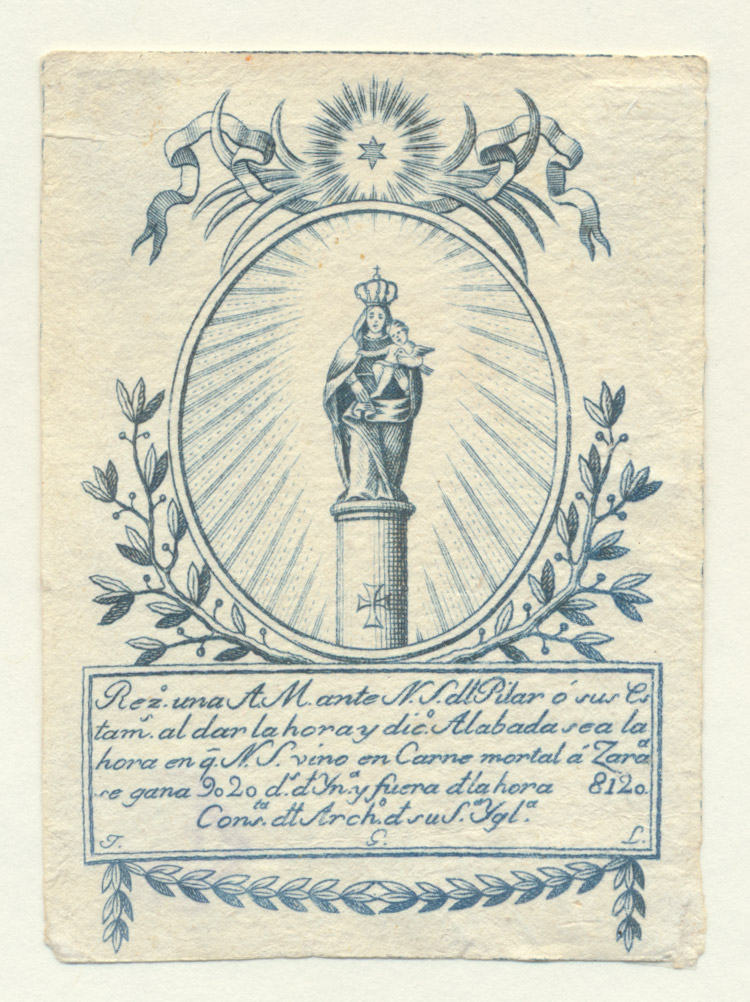 Rez.º una A M. ante N. S. dl Pilar ó sus Es
tam.s al dar la hora y dic.º Alabada sea la
hora en q̄ N. S. vino en Carne mortal á Zara.a
se gana 9020 d.s d Yn.a y fuera d la hora 8120.
Cons.ta dl Arch.º d su S.ta Ygl.a
J. G. L.